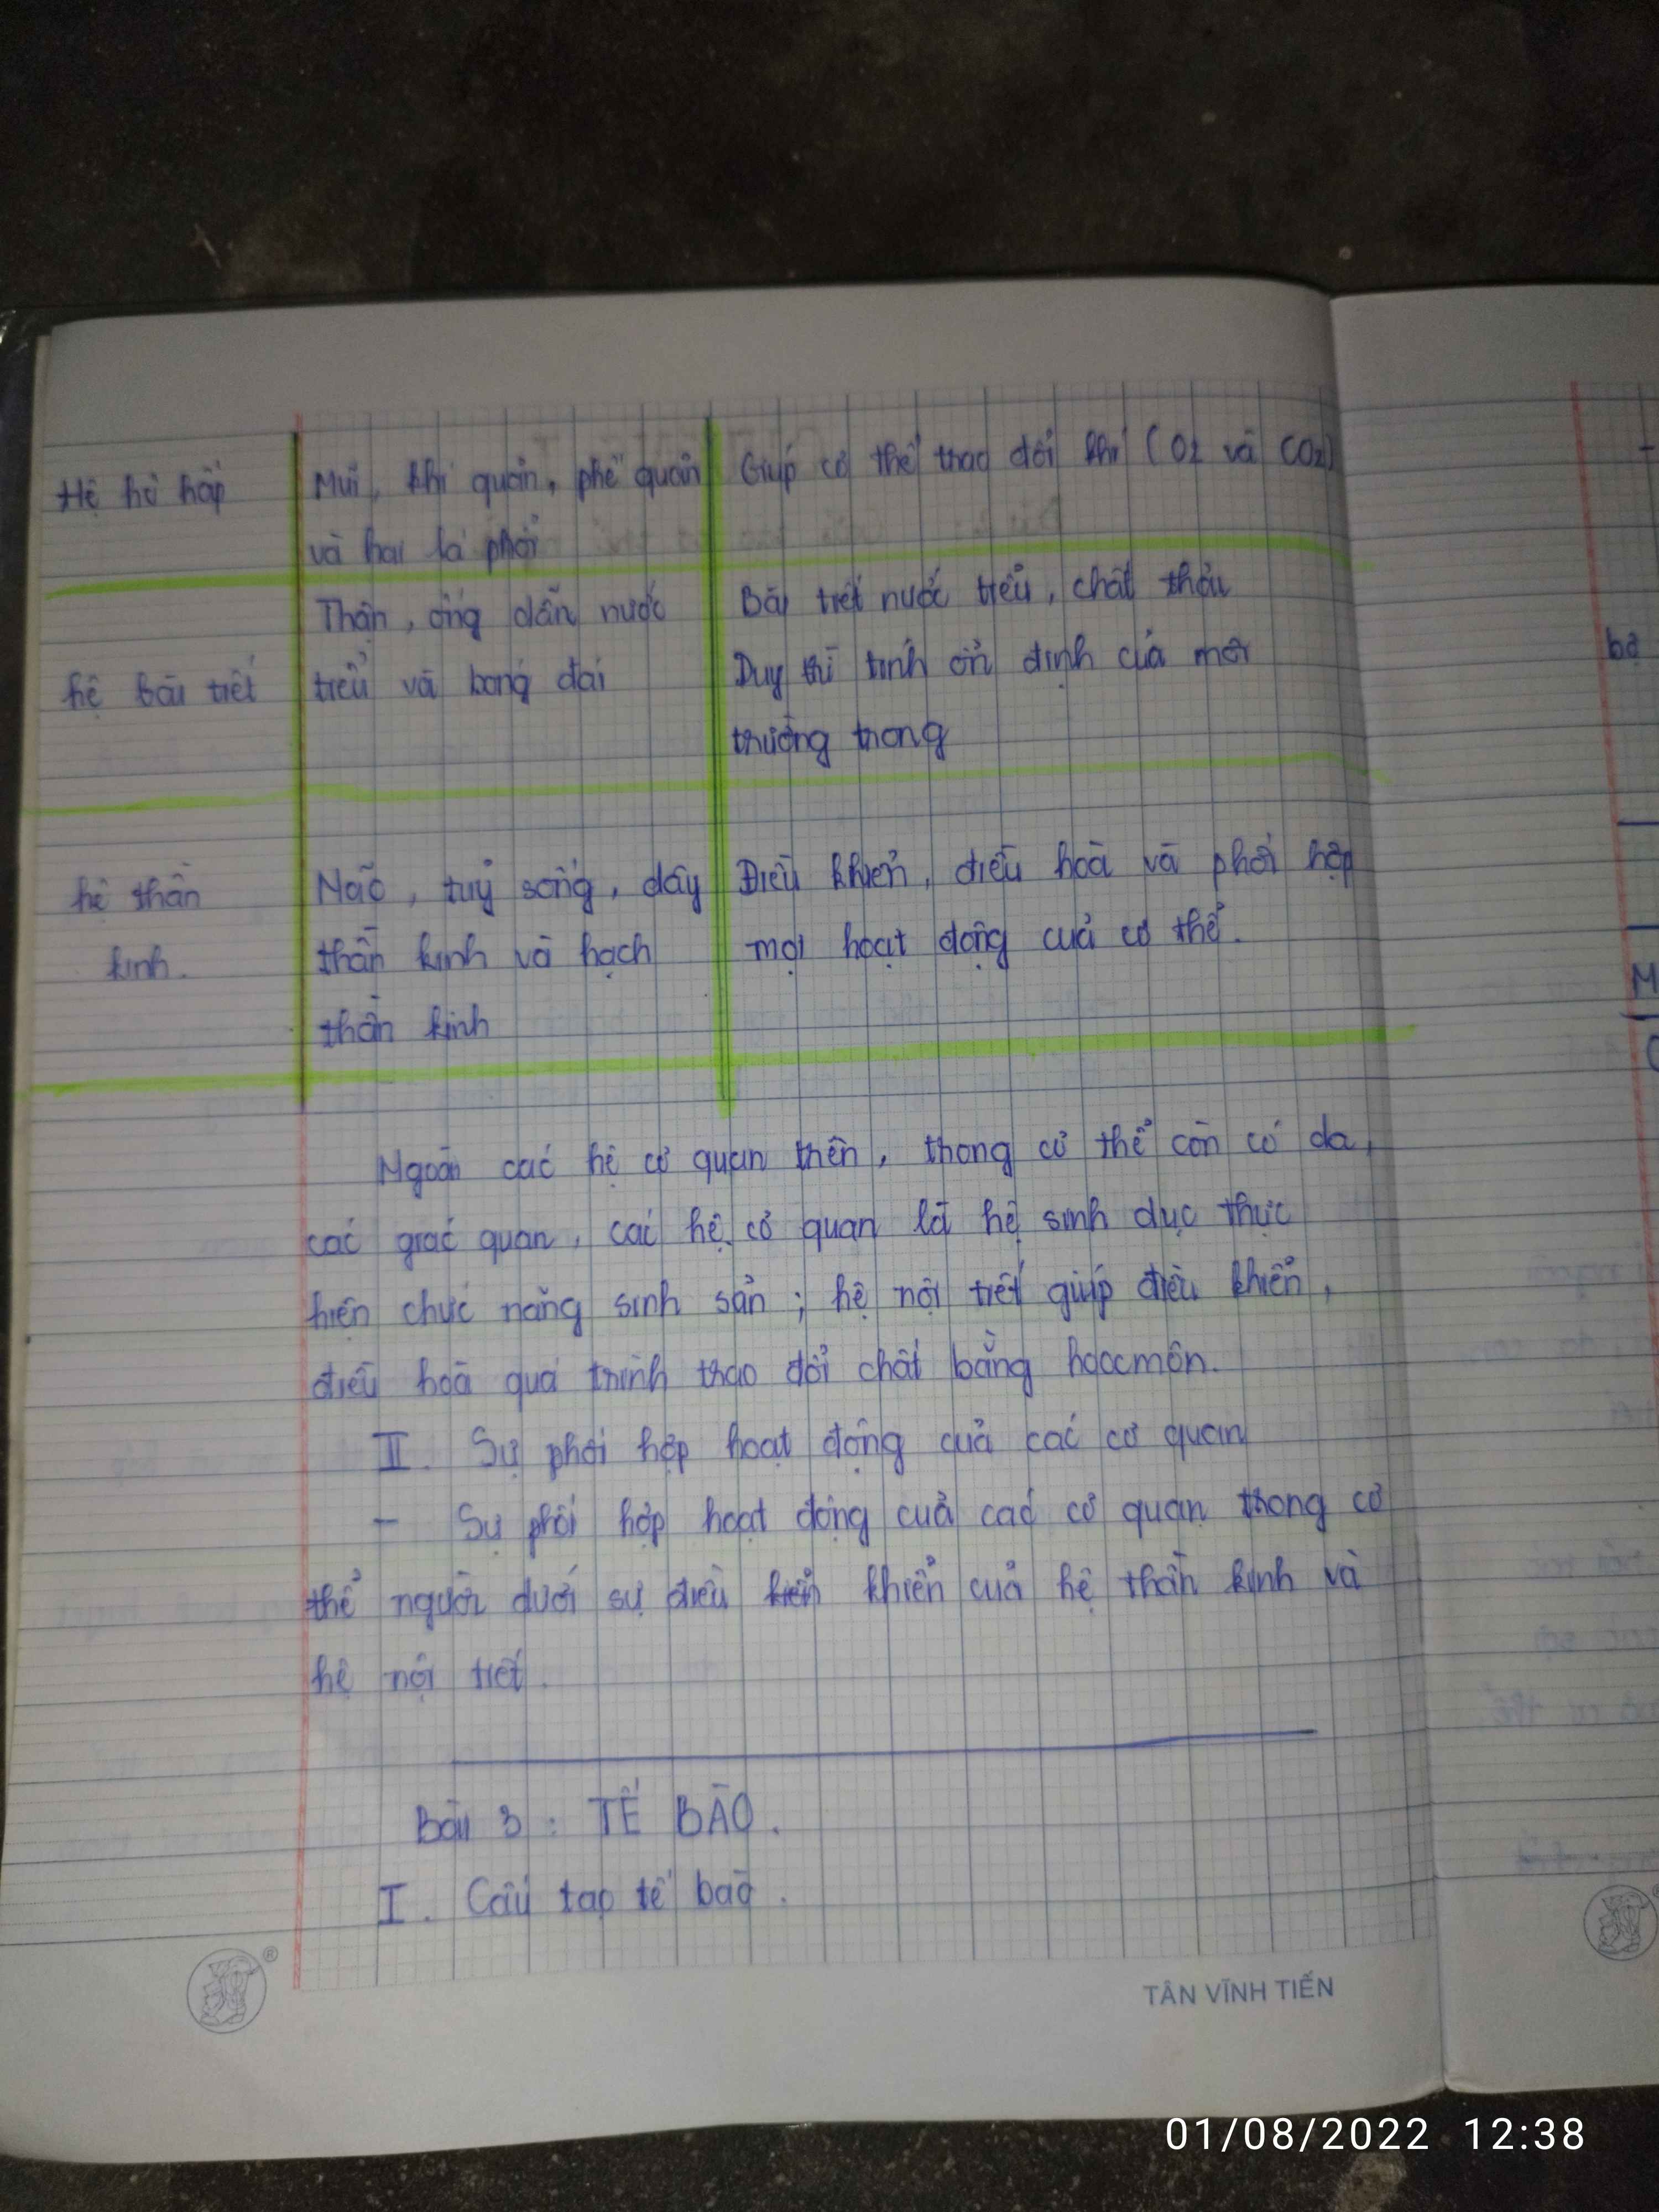 Hệ hô hấp
Mũi, khí quản, phế quản
và hai lá phổi
Giúp cơ thể trao đổi khí (O2 và CO2)
hệ bài tiết
Thận, ống dẫn nước
tiểu và bóng đái
Bài tiết nước tiểu, chất thải
Duy trì tính ổn định của môi
trường trong
hệ thần
kinh.
Não, tuỷ sống, dây
thần kinh và hạch
thần kinh
Điều khiển, điều hoà và phối hợp
mọi hoạt động của cơ thể.
Ngoài các hệ cơ quan trên, trong cơ thể còn có da,
các giác quan, các hệ cơ quan là hệ sinh dục thực
hiện chức năng sinh sản; hệ nội tiết giúp điều khiển,
điều hoà quá trình trao đổi chất bằng hoocmôn.
II. Sự phối hợp hoạt động của các cơ quan
- Sự phối hợp hoạt động của các cơ quan trong cơ
thể người dưới sự điều khiển của hệ thần kinh và
hệ nội tiết.
Bài 3: TẾ BÀO.
I. Cấu tạo tế bào.
TÂN VĨNH TIẾN
bộ
01/08/2022 12:38